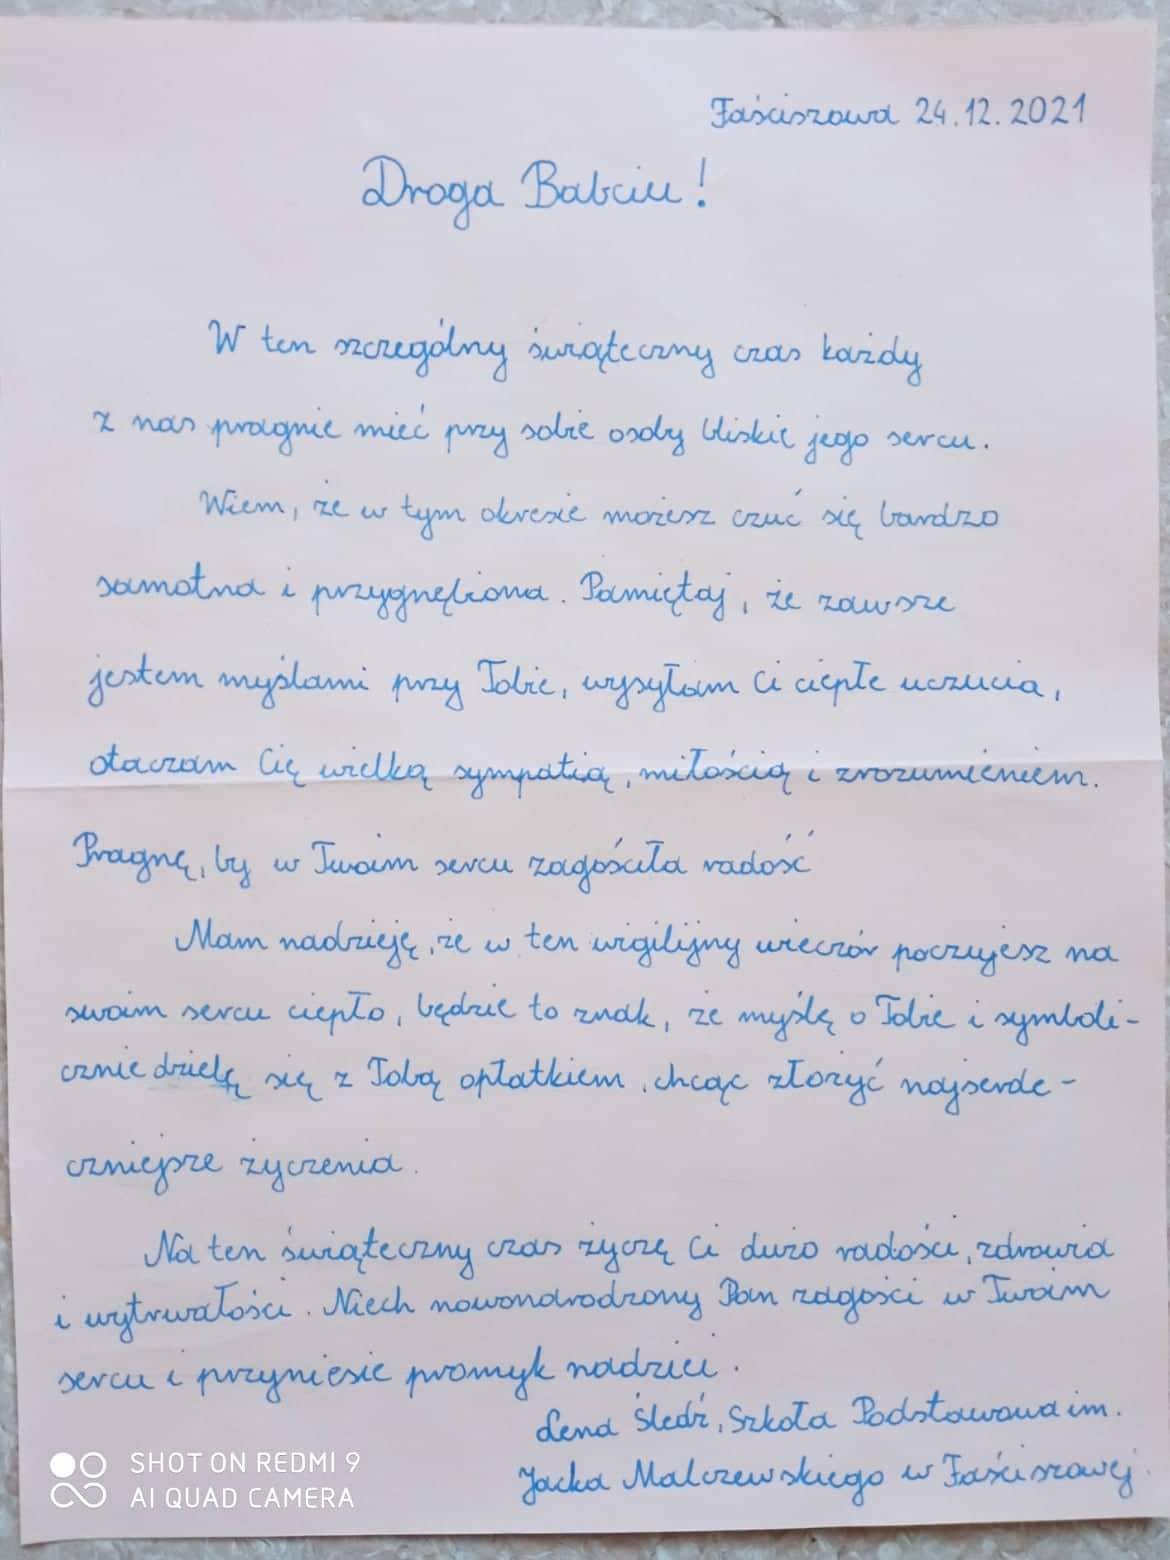 Faściszowa 24.12.2021
Droga Babciu!
W ten szczególny świąteczny czas każdy
z nas pragnie mieć przy sobie osoby bliskie jego sercu.
Wiem, że w tym okresie możesz czuć się bardzo
samotna i przygnębiona. Pamiętaj, że zawsze
jestem myślami przy Tobie, wysyłam Ci ciepłe uczucia,
otaczam Cię wielką sympatią, miłością i zrozumieniem.
Pragnę, by w Twoim sercu zagościła radość
Mam nadzieję, że w ten wigilijny wieczór poczujesz na
swoim sercu ciepło, będzie to znak, że myślę o Tobie i symboli-
cznie dzielę się z Tobą opłatkiem, chcąc złożyć najserde-
czniejsze życzenia.
Na ten świąteczny czas życzę Ci dużo radości, zdrowia
i wytrwałości. Niech nowonarodzony Pan zagości w Twoim
sercu i przyniesie promyk nadziei.
Lena Śledź, Szkoła Podstawowa im.
Jacka Malczewskiego w Faściszowej.
SHOT ON REDMI 9
AI QUAD CAMERA